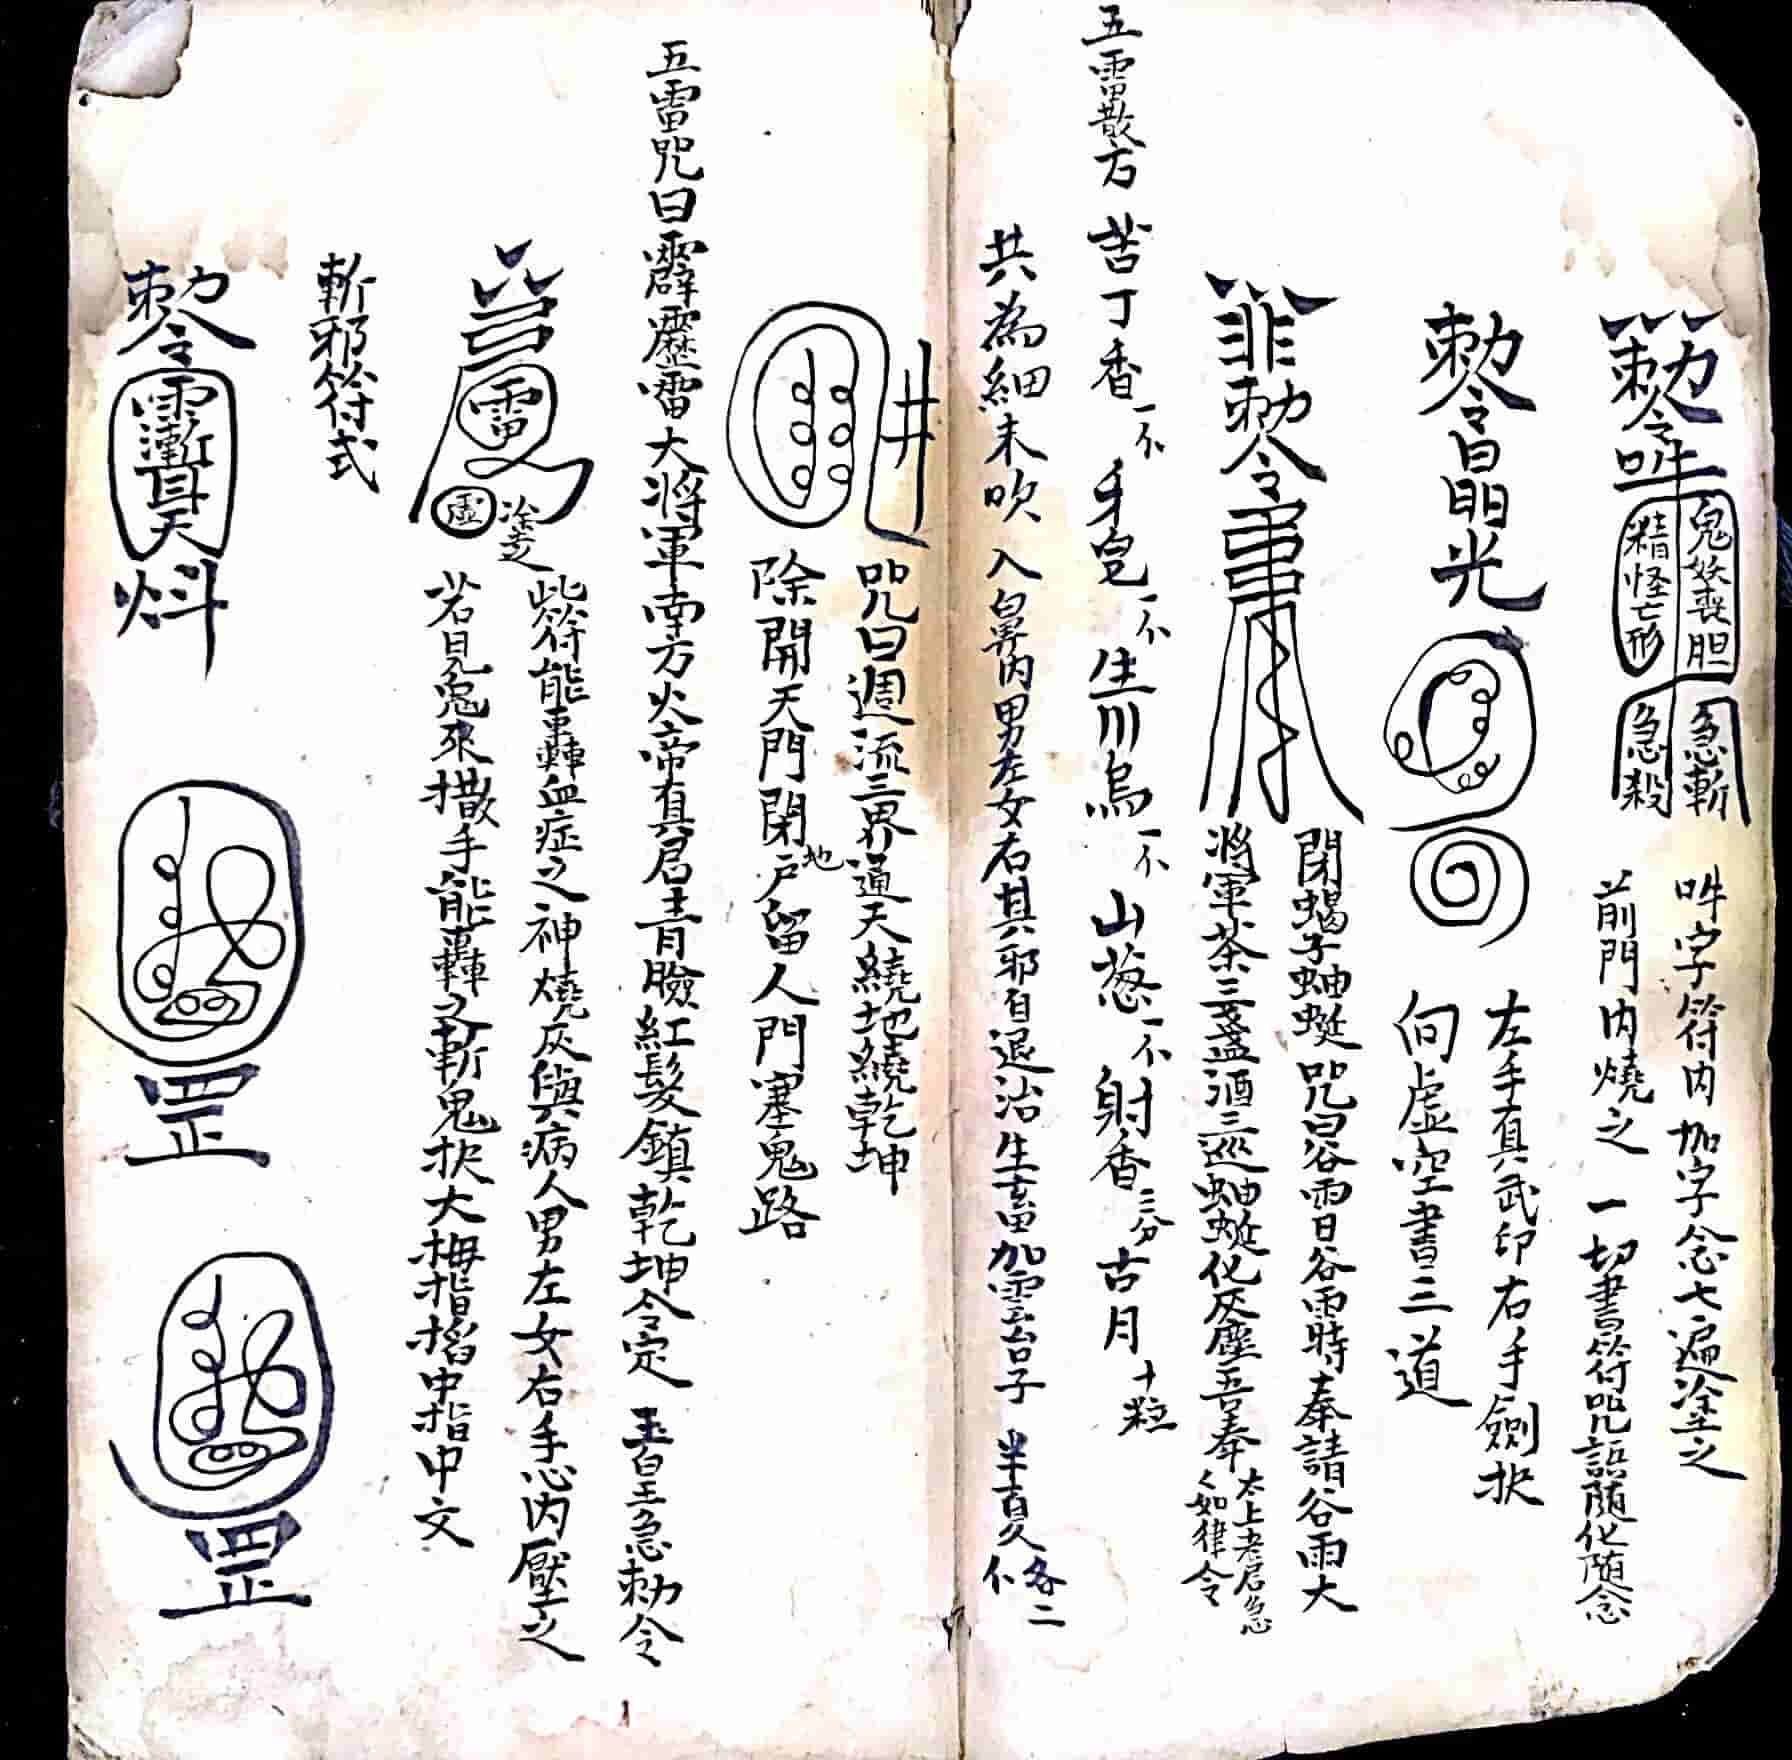 勅令吽
鬼妖喪胆
精怪亡形
急斬
急殺
吽字符内加字念七遍塗之
前門内燒之 一切書符咒語随化随念
勅令日明光
左手真武印右手劍
向虚空書三道
勅令
閉蝎子蚰蜒 咒曰谷雨日谷雨時奉請谷雨大
將軍茶三盞酒三巡蚰蜒化灰塵吾奉
太上老君急
く如律令
五雷散方 苦丁香 牙皂 生川烏 山葱 射香三分 古月十粒
共為細末吹入鼻内男左女右其邪自退治生畜加雲台子 半夏 各二
咒曰週流三界通天繞地繞乾坤
除開天門閉地户留人門塞鬼路
五雷咒曰霹靂雷大将軍南方火帝真君青臉紅髮鎮乾坤令定 玉皇急勅令
雷
虚
塗之
此符能轟血症之神燒灰與病人男左女右手心内壓之
若見鬼來撒手能轟又斬鬼 大拇指掐中指中文
斬邪符式
勅令
罡
罡